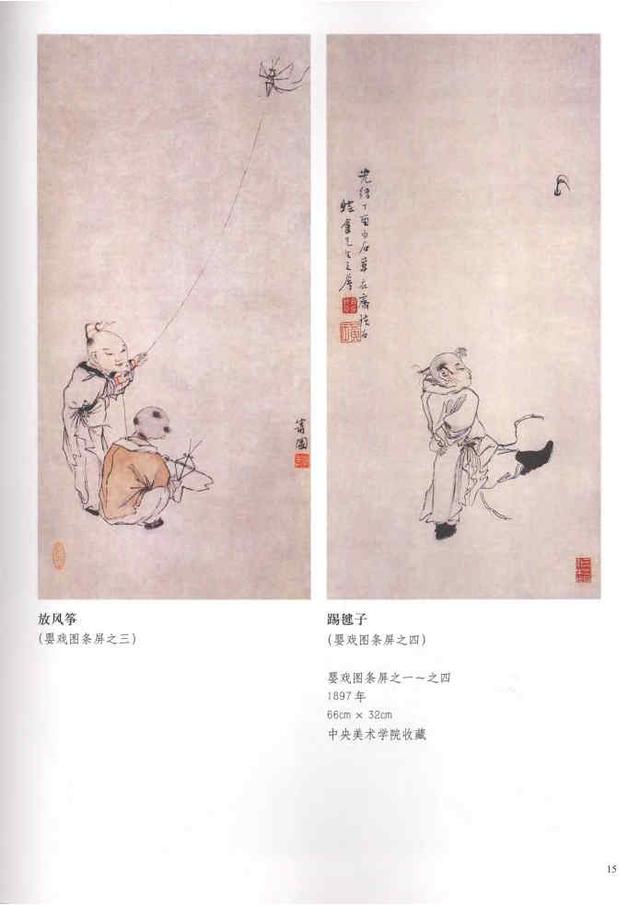 光绪丁酉
蛙龛
放风筝
(婴戏图条屏之三)
踢毽子
(婴戏图条屏之四)
婴戏图条屏之一～之四
1897 年
66cm × 32cm
中央美术学院收藏
15